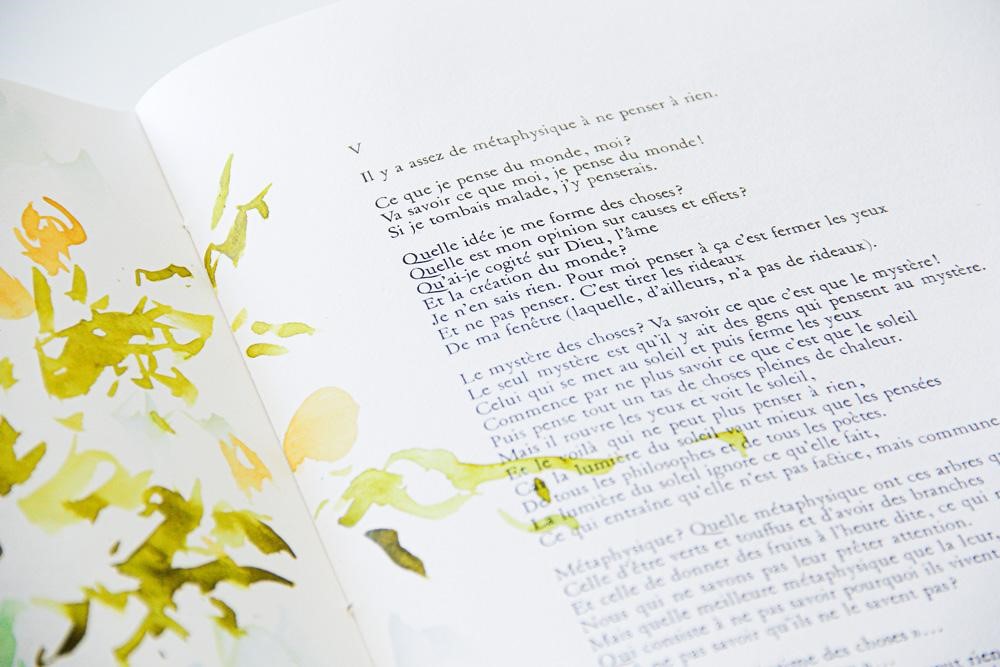 V
Il y a assez de métaphysique à ne penser à rien.
Ce que je pense du monde, moi?
Va savoir ce que moi, je pense du monde!
Si je tombais malade, j'y penserais.
Quelle idée je me forme des choses?
Quelle est mon opinion sur causes et effets?
Qu'ai-je cogité sur Dieu, l'âme
Et la création du monde?
Je n'en sais rien. Pour moi penser à ça c'est fermer les yeux
Et ne pas penser. C'est tirer les rideaux
De ma fenêtre (laquelle, d'ailleurs, n'a pas de rideaux).
Le mystère des choses? Va savoir ce que c'est que le mystère!
Le seul mystère est qu'il y ait des gens qui pensent au mystère.
Celui qui se met au soleil et puis ferme les yeux
Commence par ne plus savoir ce que c'est que le soleil
Puis pense tout un tas de choses pleines de chaleur.
Mais il rouvre les yeux et voit le soleil,
Et le voilà qui ne peut plus penser à rien,
Car la lumière du soleil vaut mieux que les pensées
De tous les philosophes et de tous les poètes.
La lumière du soleil ignore ce qu'elle fait,
Ce qui entraîne qu'elle n'est pas factice, mais commune
Métaphysique? Quelle métaphysique ont ces arbres
Celle d'être verts et touffus et d'avoir des branches
Et celle de donner des fruits à l'heure dite, ce qui
Nous qui ne savons pas leur prêter attention.
Mais quelle meilleure métaphysique que la leur,
Qui consiste à ne pas savoir pourquoi ils vivent
ne pas savoir qu'ils ne le savent pas?
des choses »...